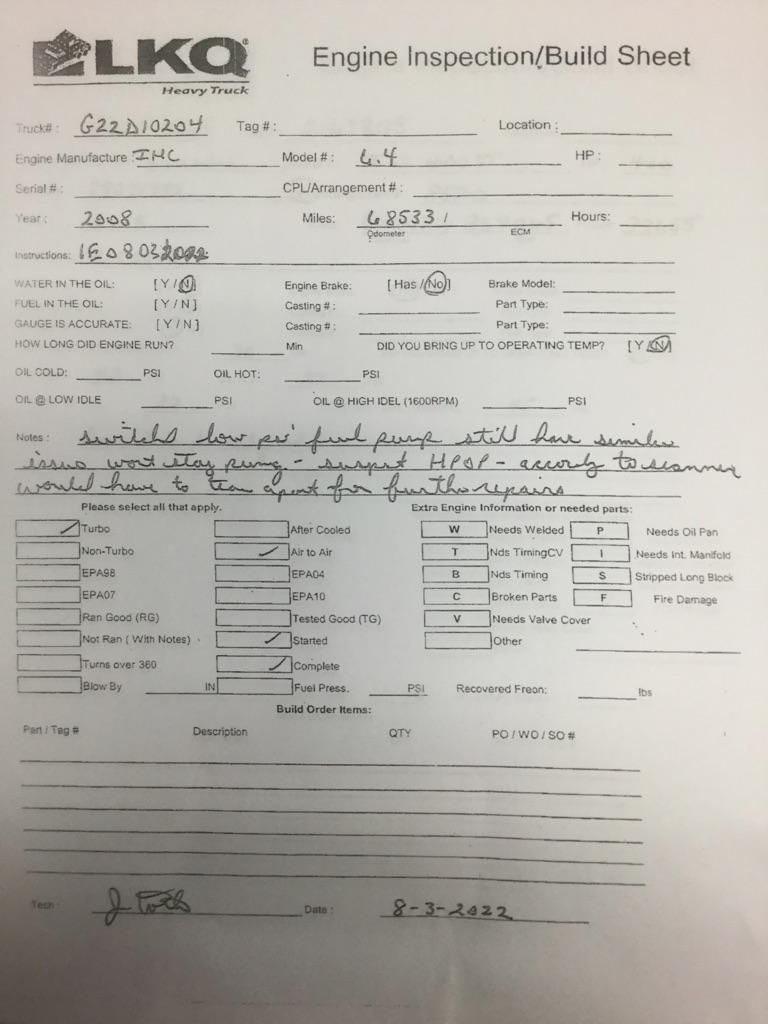 LKQ® Engine Inspection/Build Sheet
Heavy Truck
Truck# : G22D10204 Tag # : Location :
Engine Manufacture : IHC Model # : 6.4 HP :
Serial # : CPL/Arrangement # :
Year : 2008 Miles: 685331 Hours:
Odometer ECM
Instructions: 1E08032022
WATER IN THE OIL: [ Y / N ] Engine Brake: [ Has / No ] Brake Model:
FUEL IN THE OIL: [ Y / N ] Casting # : Part Type:
GAUGE IS ACCURATE: [ Y / N ] Casting # : Part Type:
HOW LONG DID ENGINE RUN? Min DID YOU BRING UP TO OPERATING TEMP? [ Y / N ]
OIL COLD: PSI OIL HOT: PSI
OIL @ LOW IDLE PSI OIL @ HIGH IDEL (1600RPM) PSI
Notes : low fuel pump still have
issues wont stay - suspect HPOP - to scanner
would have to apart for repairs
Please select all that apply. Extra Engine Information or needed parts:
Turbo After Cooled W Needs Welded P Needs Oil Pan
Non-Turbo Air to Air T Nds TimingCV I Needs Int. Manifold
EPA98 EPA04 B Nds Timing S Stripped Long Block
EPA07 EPA10 C Broken Parts F Fire Damage
Ran Good (RG) Tested Good (TG) V Needs Valve Cover
Not Ran ( With Notes) Started Other
Turns over 360 Complete
Blow By IN Fuel Press. PSI Recovered Freon: lbs
Build Order Items:
Part / Tag # Description QTY PO / WO / SO #
Tech : J Date : 8-3-2022